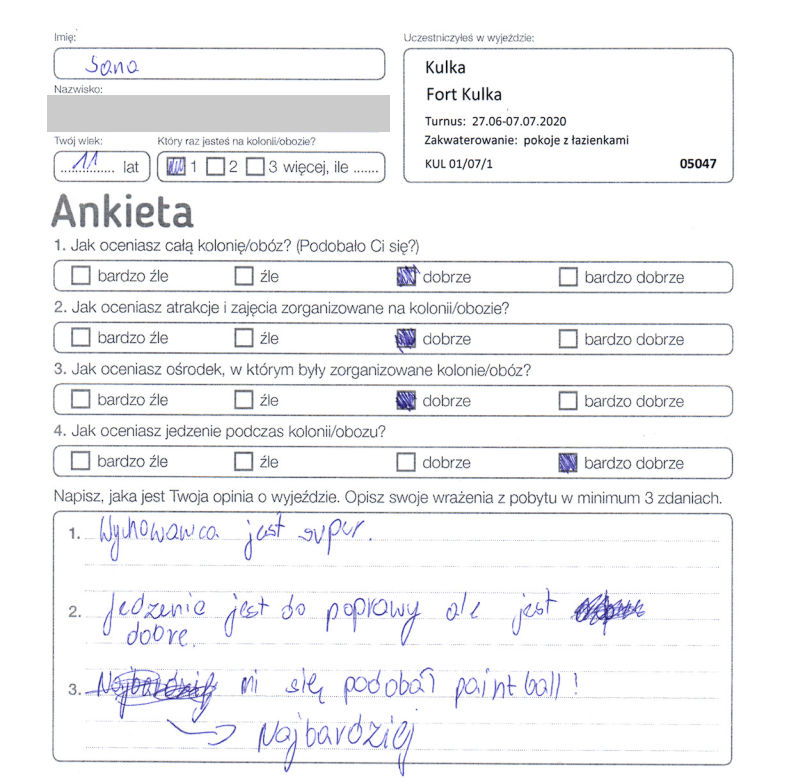 Imię:
Uczestniczyłeś w wyjeździe:
Sana
Kulka
Fort Kulka
Nazwisko:
Turnus: 27.06-07.07.2020
Zakwaterowanie: pokoje z łazienkami
KUL 01/07/1 05047
Twój wiek: Który raz jesteś na kolonii/obozie?
11 lat 1 2 3 więcej, ile .......
Ankieta
1. Jak oceniasz całą kolonię/obóz? (Podobało Ci się?)
bardzo źle źle dobrze bardzo dobrze
2. Jak oceniasz atrakcje i zajęcia zorganizowane na kolonii/obozie?
bardzo źle źle dobrze bardzo dobrze
3. Jak oceniasz ośrodek, w którym były zorganizowane kolonie/obóz?
bardzo źle źle dobrze bardzo dobrze
4. Jak oceniasz jedzenie podczas kolonii/obozu?
bardzo źle źle dobrze bardzo dobrze
Napisz, jaka jest Twoja opinia o wyjeździe. Opisz swoje wrażenia z pobytu w minimum 3 zdaniach.
1. Wychowawca jest super.
2. Jedzenie jest do poprawy ale jest
dobre.
3. Najbardziej mi się podobał paintball!
Najbardziej